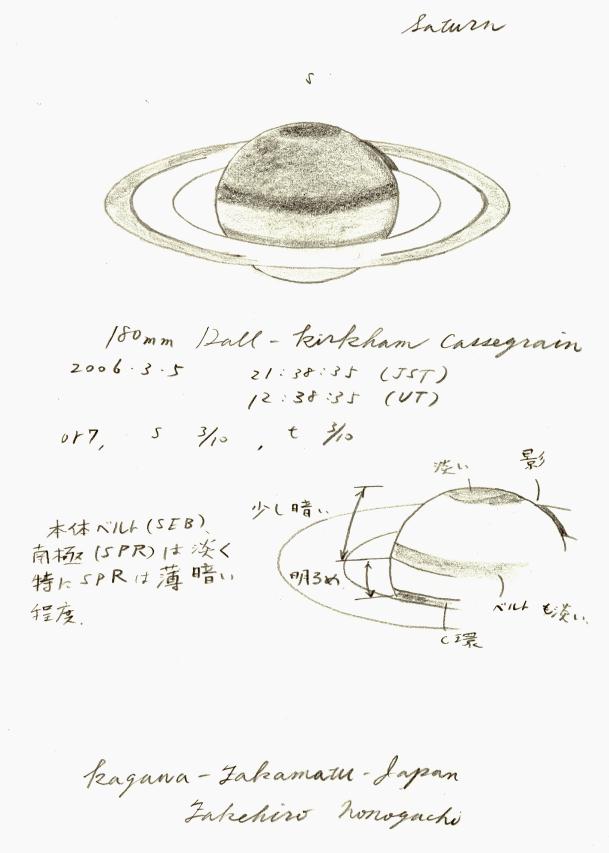 Saturn
S
180mm Dall-Kirkham Cassegrain
2006・3・5 21:38:35 (JST)
12:38:35 (UT)
or7, S 3/10, t 3/10
淡い
影
少し暗い
本体ベルト(SEB)
南極(SPR)は淡く
特にSPRは薄暗い
程度.
明るめ
ベルトも淡い
C環
Kagawa-Takamatu-Japan
Takehiro Nonoguchi